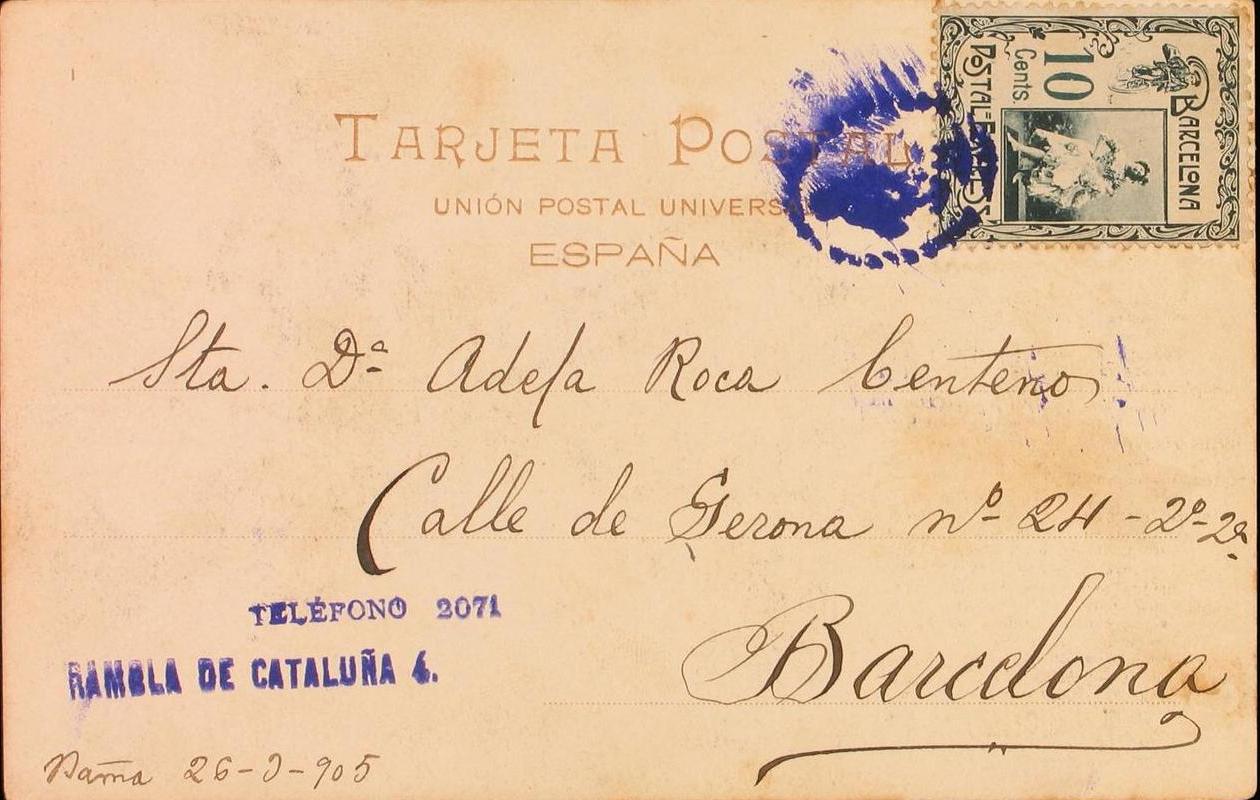 TARJETA POSTAL
UNIÓN POSTAL UNIVERSAL
ESPAÑA
BARCELONA
10
Cents.
Sta. Dª Adela Roca Centeno
Calle de Gerona nº 24 - 2º - 2ª
Barcelona
TELÉFONO 2071
RAMBLA DE CATALUÑA 4.
26-9-905